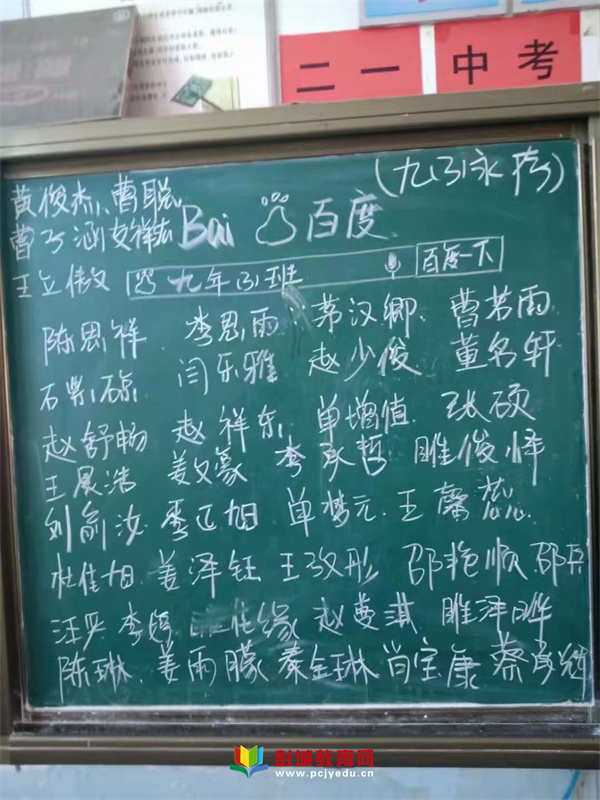 二一中考
(九(3)永存)
黄俊杰、曹聪
曹子涵
王立傲
Bai 百度
九年(3)班 百度一下
陈思祥 李思雨 茅汉卿 曹若雨
石 琼 闫乐雅 赵少俊 董名轩
赵舒畅 赵祥东 单增值 张硕
王晨浩 姜文豪 李承哲 睢俊烨
刘俞汝 季正旭 单梦元 王馨蕊
杜佳旭 姜泽钰 王孜彤 邵艳顺 邵兵
汪兴 李婷 佳缘 赵蔓淇 睢泽晔
陈琳 姜雨朦 秦金琳 尚宝康 蔡彦键
彭城教育网
www.pcjyedu.cn